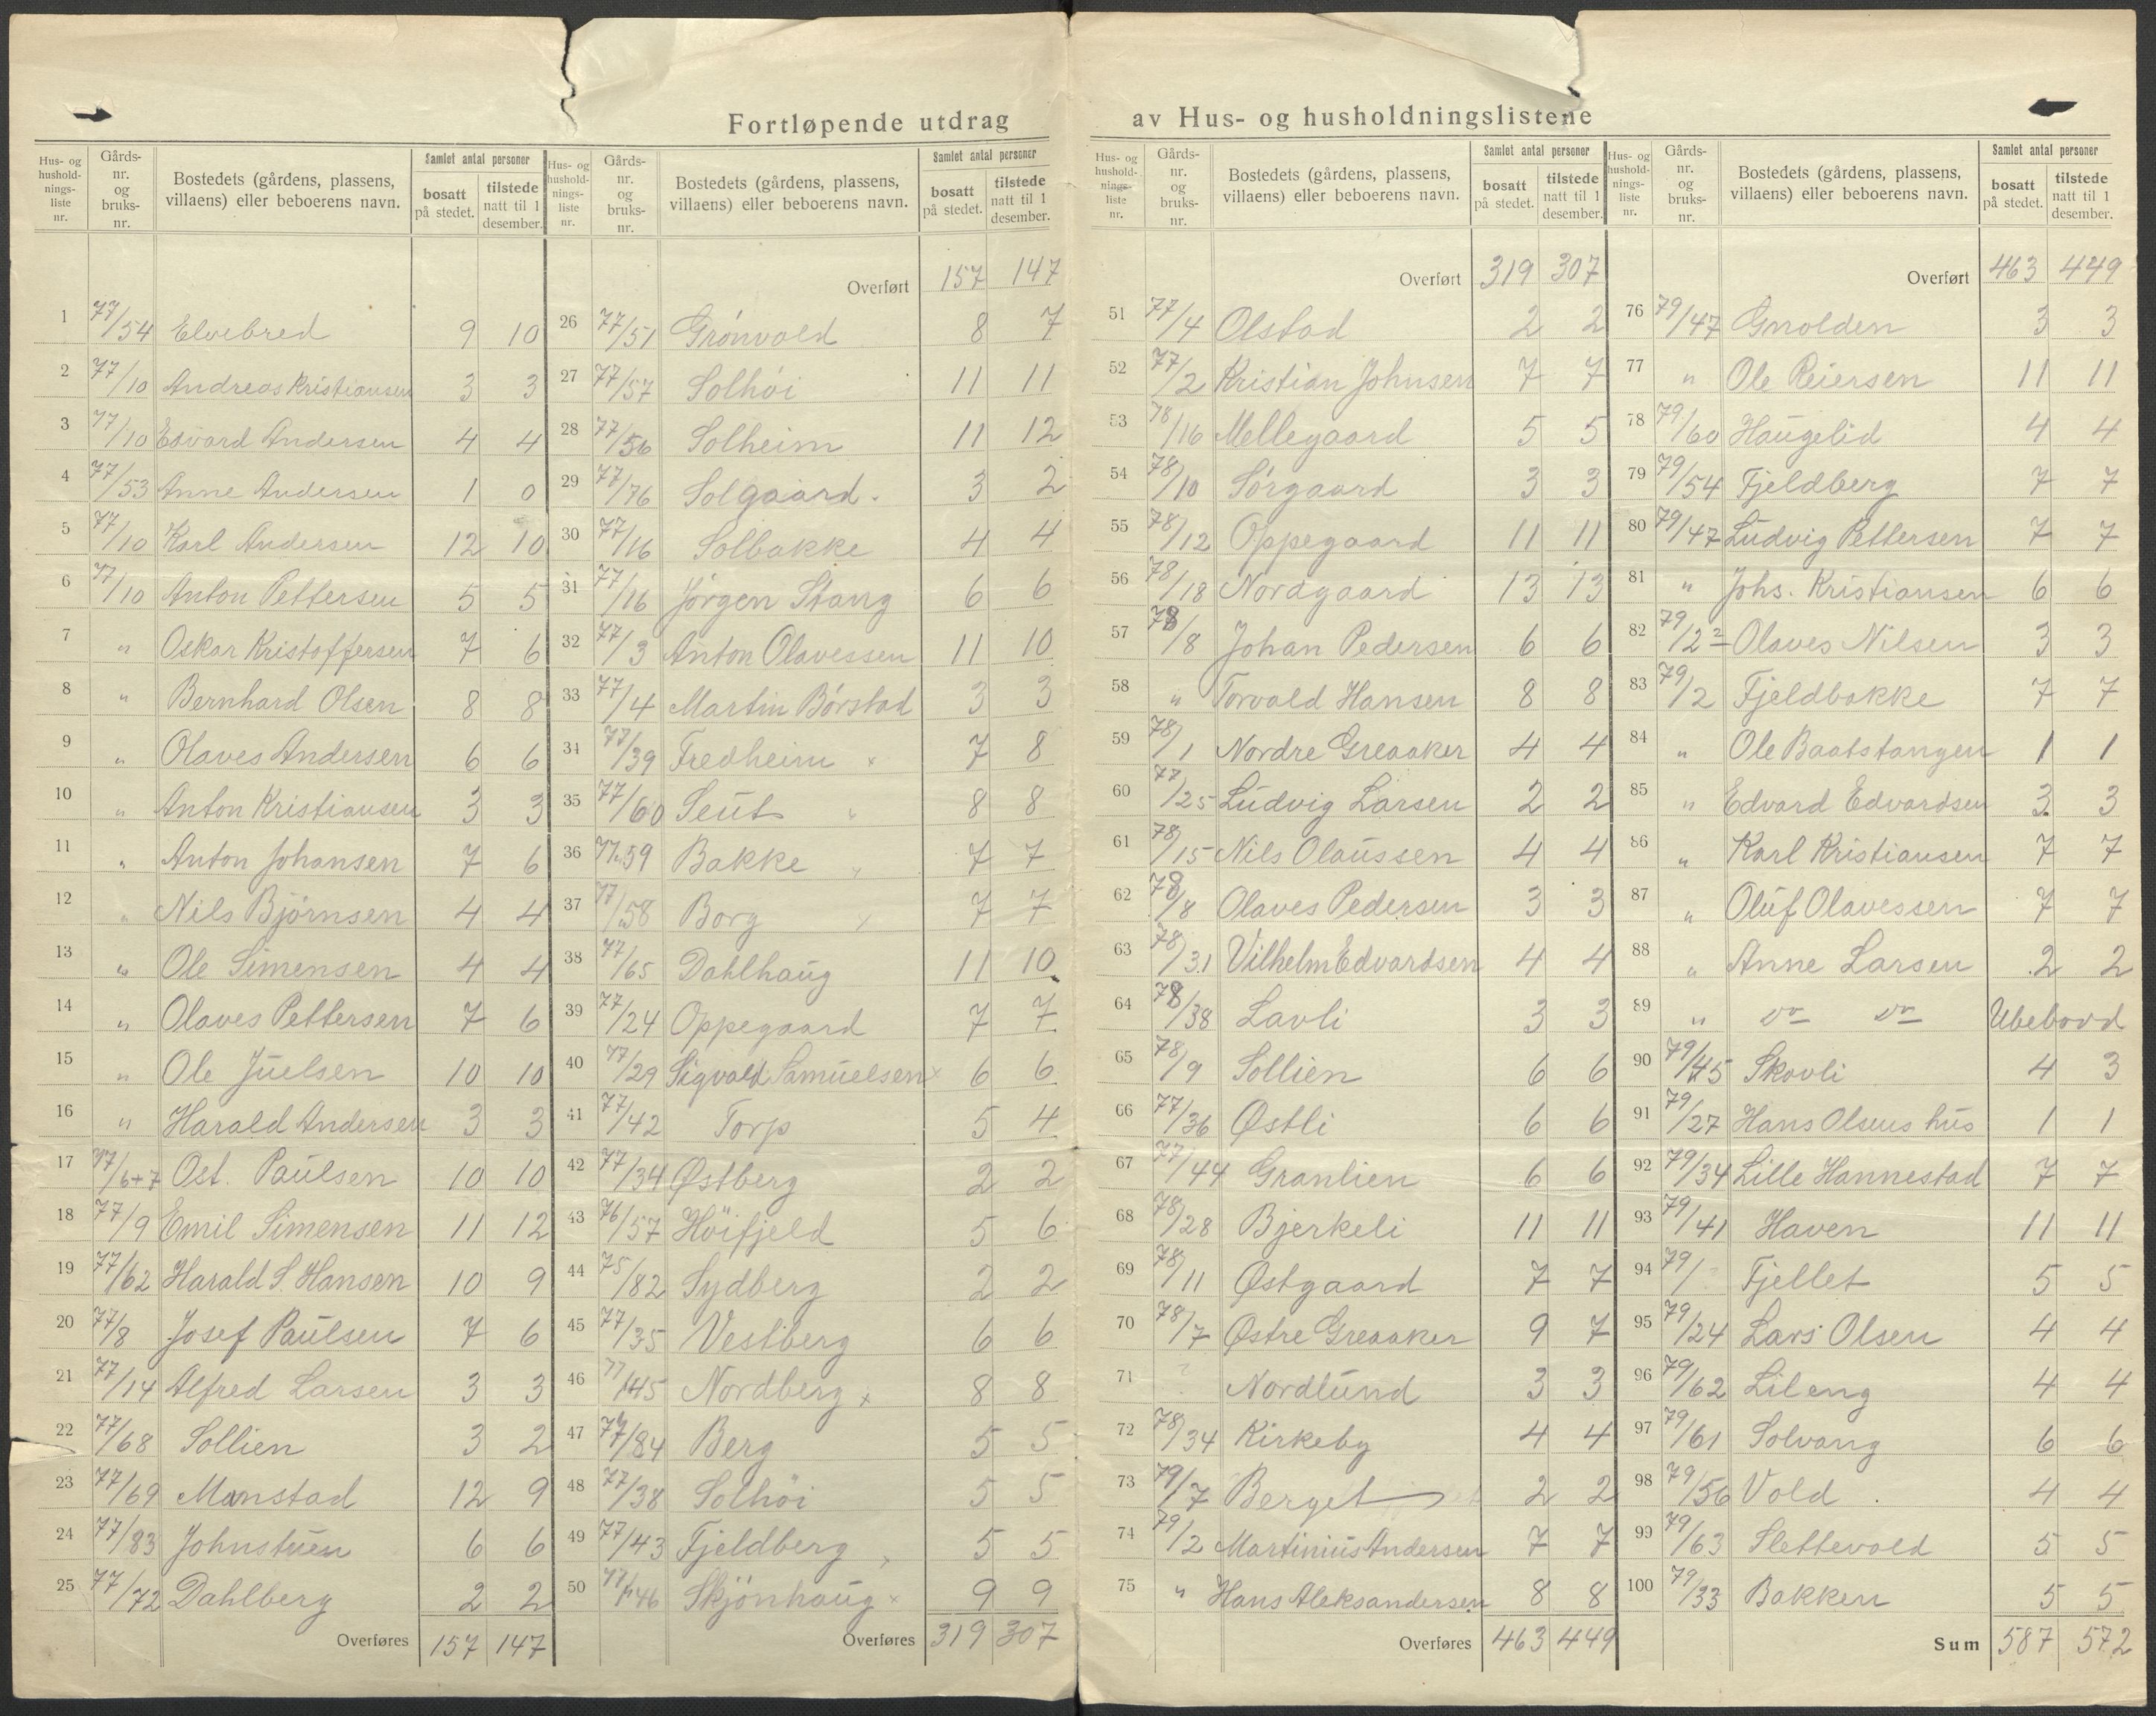 Fortløpende utdrag av Hus- og husholdningslistene
Hus- og husholdnings- liste nr. | Gårds- nr. og bruks- nr. | Bostedets (gårdens, plassens, villaens) eller beboerens navn. | Samlet antal personer | bosatt på stedet. | tilstede natt til 1 desember.
1 77/54 Elvebred 9 10
2 77/10 Andreas Kristiansen 3 3
3 77/10 Edvard Andersen 4 4
4 77/53 Anne Andersen 1 0
5 77/10 Karl Andersen 12 10
6 77/10 Anton Pettersen 5 5
7 " Oskar Kristoffersen 7 6
8 " Bernhard Olsen 8 8
9 " Olaves Andersen 6 6
10 " Anton Kristiansen 3 3
11 " Anton Johansen 7 6
12 " Nils Bjørnsen 4 4
13 " Ole Simensen 4 4
14 " Olaves Pettersen 7 6
15 " Ole Juelsen 10 10
16 " Harald Andersen 3 3
17 77/6+7 Ost. Paulsen 10 10
18 77/9 Emil Simensen 11 12
19 77/62 Harald S. Hansen 10 9
20 77/8 Josef Paulsen 7 6
21 77/14 Alfred Larsen 3 3
22 77/68 Sollien 3 2
23 77/69 Monstad 12 9
24 77/83 Johnstuen 6 6
25 77/72 Dahlberg 2 2
Overføres 157 147
Hus- og husholdnings- liste nr. | Gårds- nr. og bruks- nr. | Bostedets (gårdens, plassens, villaens) eller beboerens navn. | Samlet antal personer | bosatt på stedet. | tilstede natt til 1 desember.
Overført 157 147
26 77/51 Grønvold 8 7
27 77/57 Solhøi 11 11
28 77/56 Solheim 11 12
29 77/76 Solgaard. 3 2
30 77/16 Solbakke 4 4
31 77/16 Jørgen Stang 6 6
32 77/3 Anton Olavessen 11 10
33 77/4 Martin Børstad 3 3
34 77/39 Fredheim x 7 8
35 77/60 Seut 8 8
36 77/59 Bakke 7 7
37 77/58 Borg 7 7
38 77/65 Dahlhaug 11 10
39 77/24 Oppegaard 7 7
40 77/29 Sigvald Samuelsen x 6 6
41 77/42 Torp 5 4
42 77/34 Østberg 2 2
43 76/57 Höifjeld 5 6
44 75/82 Sydberg 2 2
45 77/35 Vestberg 6 6
46 77/45 Nordberg x 8 8
47 77/84 Berg 5 5
48 77/38 Solhöi 5 5
49 77/43 Fjeldberg 5 5
50 77/46 Skjönhaug x 9 9
Overføres 319 307
Hus- og husholdnings- liste nr. | Gårds- nr. og bruks- nr. | Bostedets (gårdens, plassens, villaens) eller beboerens navn. | Samlet antal personer | bosatt på stedet. | tilstede natt til 1 desember.
Overført 319 307
51 77/4 Olstad 2 2
52 77/2 Kristian Johnsen 7 7
53 78/16 Mellegaard 5 5
54 78/10 Sørgaard 3 3
55 78/12 Oppegaard 11 11
56 78/18 Nordgaard 13 13
57 78/8 Johan Pedersen 6 6
58 " Torvald Hansen 8 8
59 78/1 Nordre Greaaker 4 4
60 77/25 Ludvig Larsen 2 2
61 78/15 Nils Olaussen 4 4
62 78/8 Olaves Pedersen 3 3
63 78/31 Vilhelm Edvardsen 4 4
64 78/38 Lavli 3 3
65 78/9 Sollien 6 6
66 77/36 Østli 6 6
67 77/44 Granlien 6 6
68 78/28 Bjerkeli 11 11
69 78/11 Østgaard 7 7
70 78/7 Østre Greaaker 9 7
71 ? Nordlund 3 3
72 78/34 Kirkeby 4 4
73 79/7 Berget 2 2
74 79/2 Martinius Andersen 7 7
75 " Hans Aleksandersen 8 8
Overføres 463 449
Hus- og husholdnings- liste nr. | Gårds- nr. og bruks- nr. | Bostedets (gårdens, plassens, villaens) eller beboerens navn. | Samlet antal personer | bosatt på stedet. | tilstede natt til 1 desember.
Overført 463 449
76 79/47 Gnolden 3 3
77 " Ole Reiersen 11 11
78 79/60 Haugelid 4 4
79 79/54 Fjeldberg 7 7
80 79/47 Ludvig Pettersen 7 7
81 " Johs. Kristiansen 6 6
82 79/2 Olaves Nilsen 3 3
83 79/2 Fjeldbakke 7 7
84 " Ole Baatstangen 1 1
85 " Edvard Edvardsen 3 3
86 " Karl Kristiansen 7 7
87 " Oluf Olavessen 7 7
88 " Anne Larsen 2 2
89 " do do Ubebodd
90 79/45 Skovli 4 3
91 79/27 Hans Olsens hus 1 1
92 79/34 Lille Hannestad 7 7
93 79/41 Haven 11 11
94 79/ Fjellet 5 5
95 79/24 Lars Olsen 4 4
96 79/62 Lileng 4 4
97 79/61 Solvang 6 6
98 79/56 Vold 4 4
99 79/63 Slettevold 5 5
100 79/33 Bakken 5 5
Sum 587 572